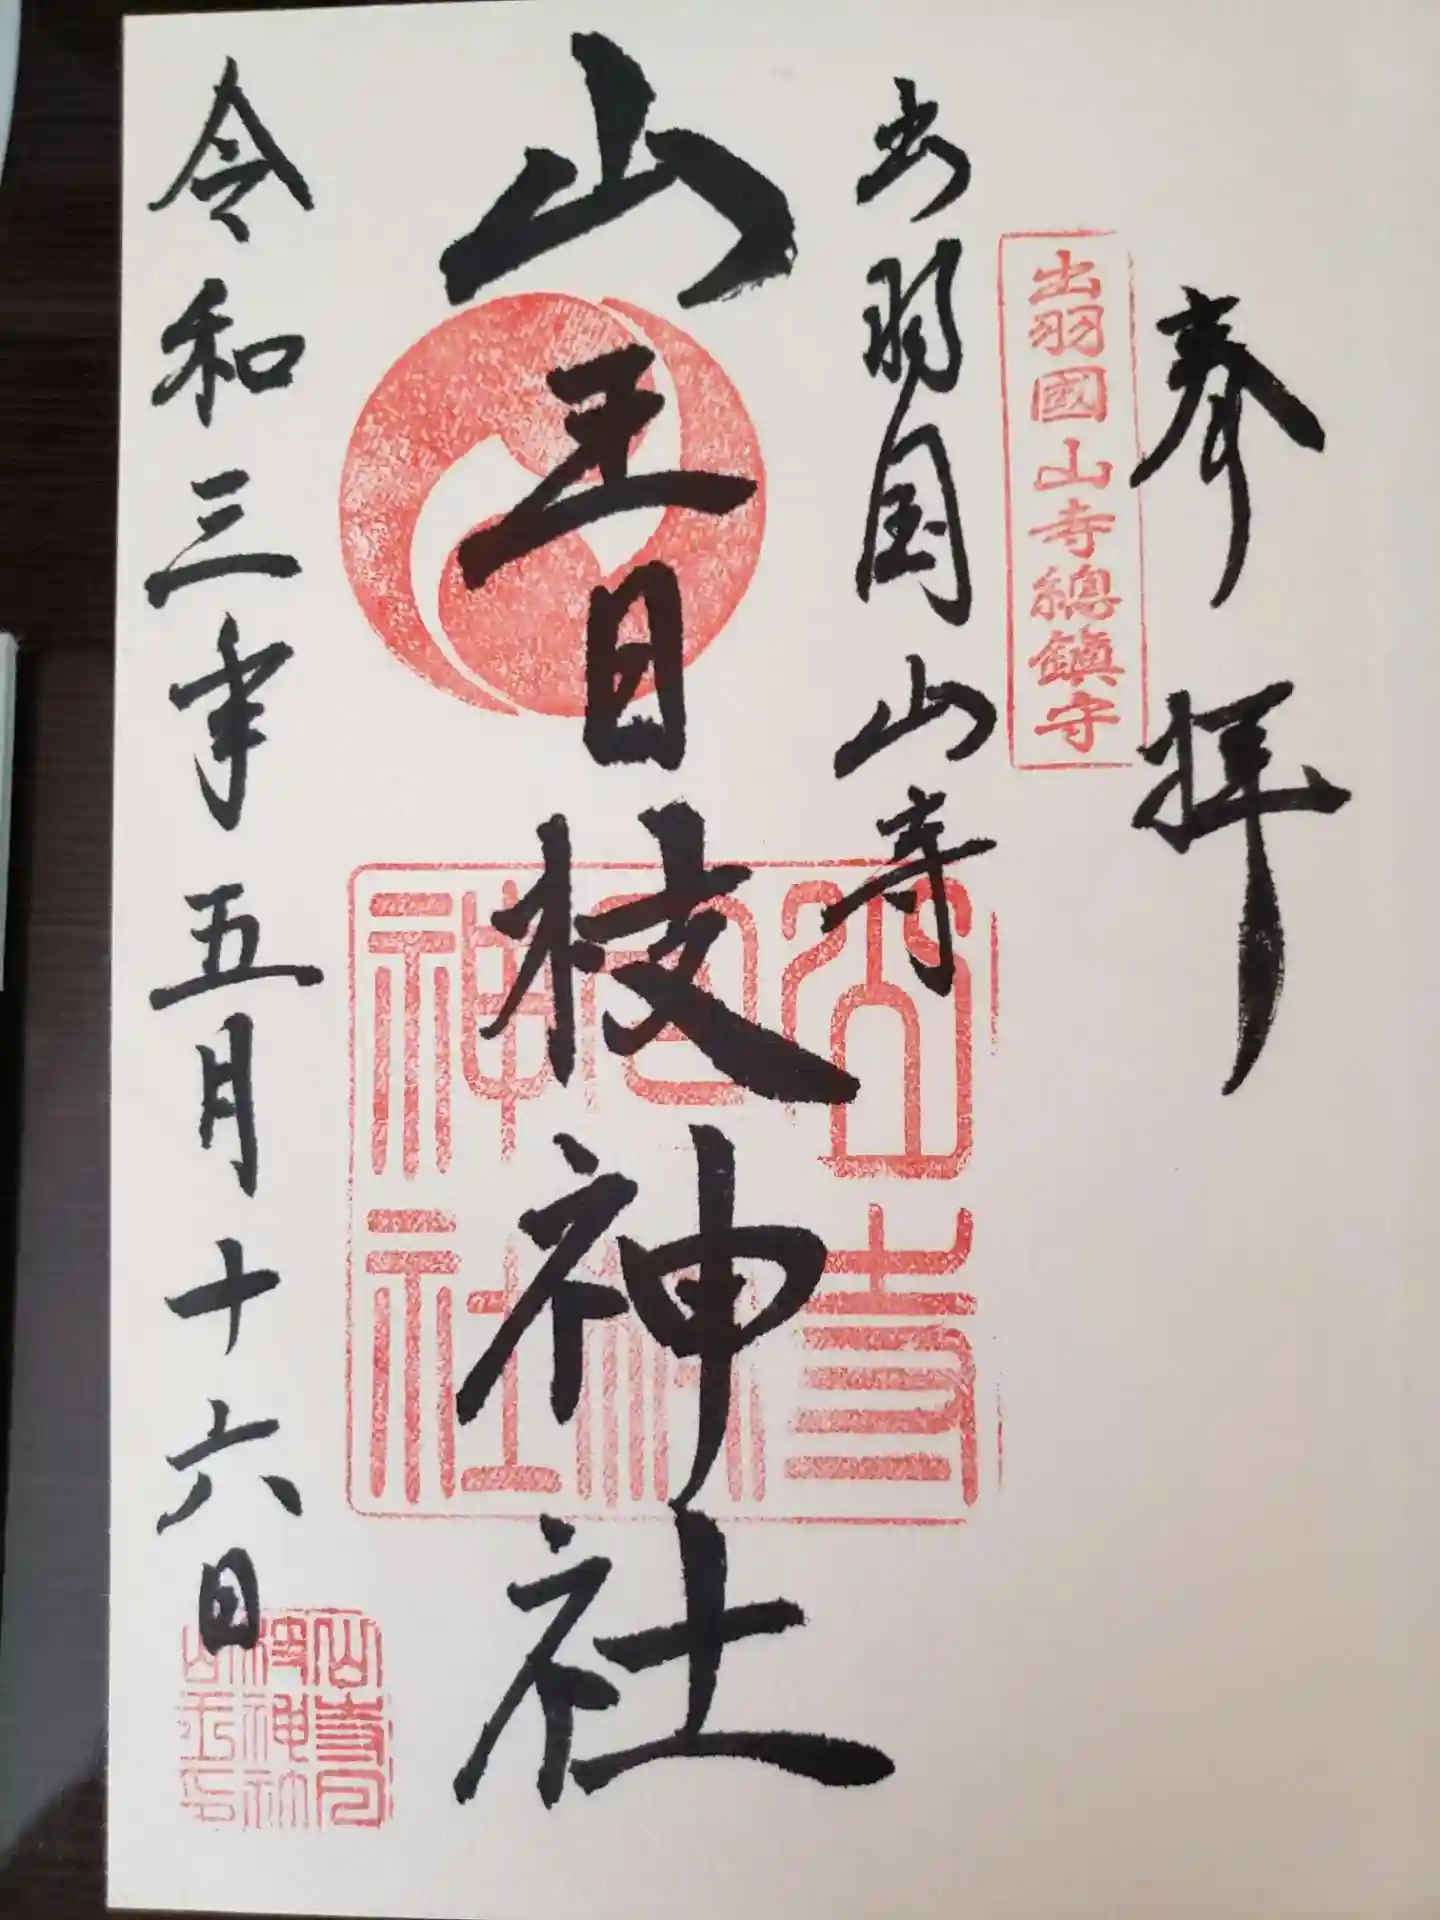 奉拝
出羽國山寺總鎮守
出羽国山寺
山王日枝神社
山寺
日枝
神社
令和三年五月十六日